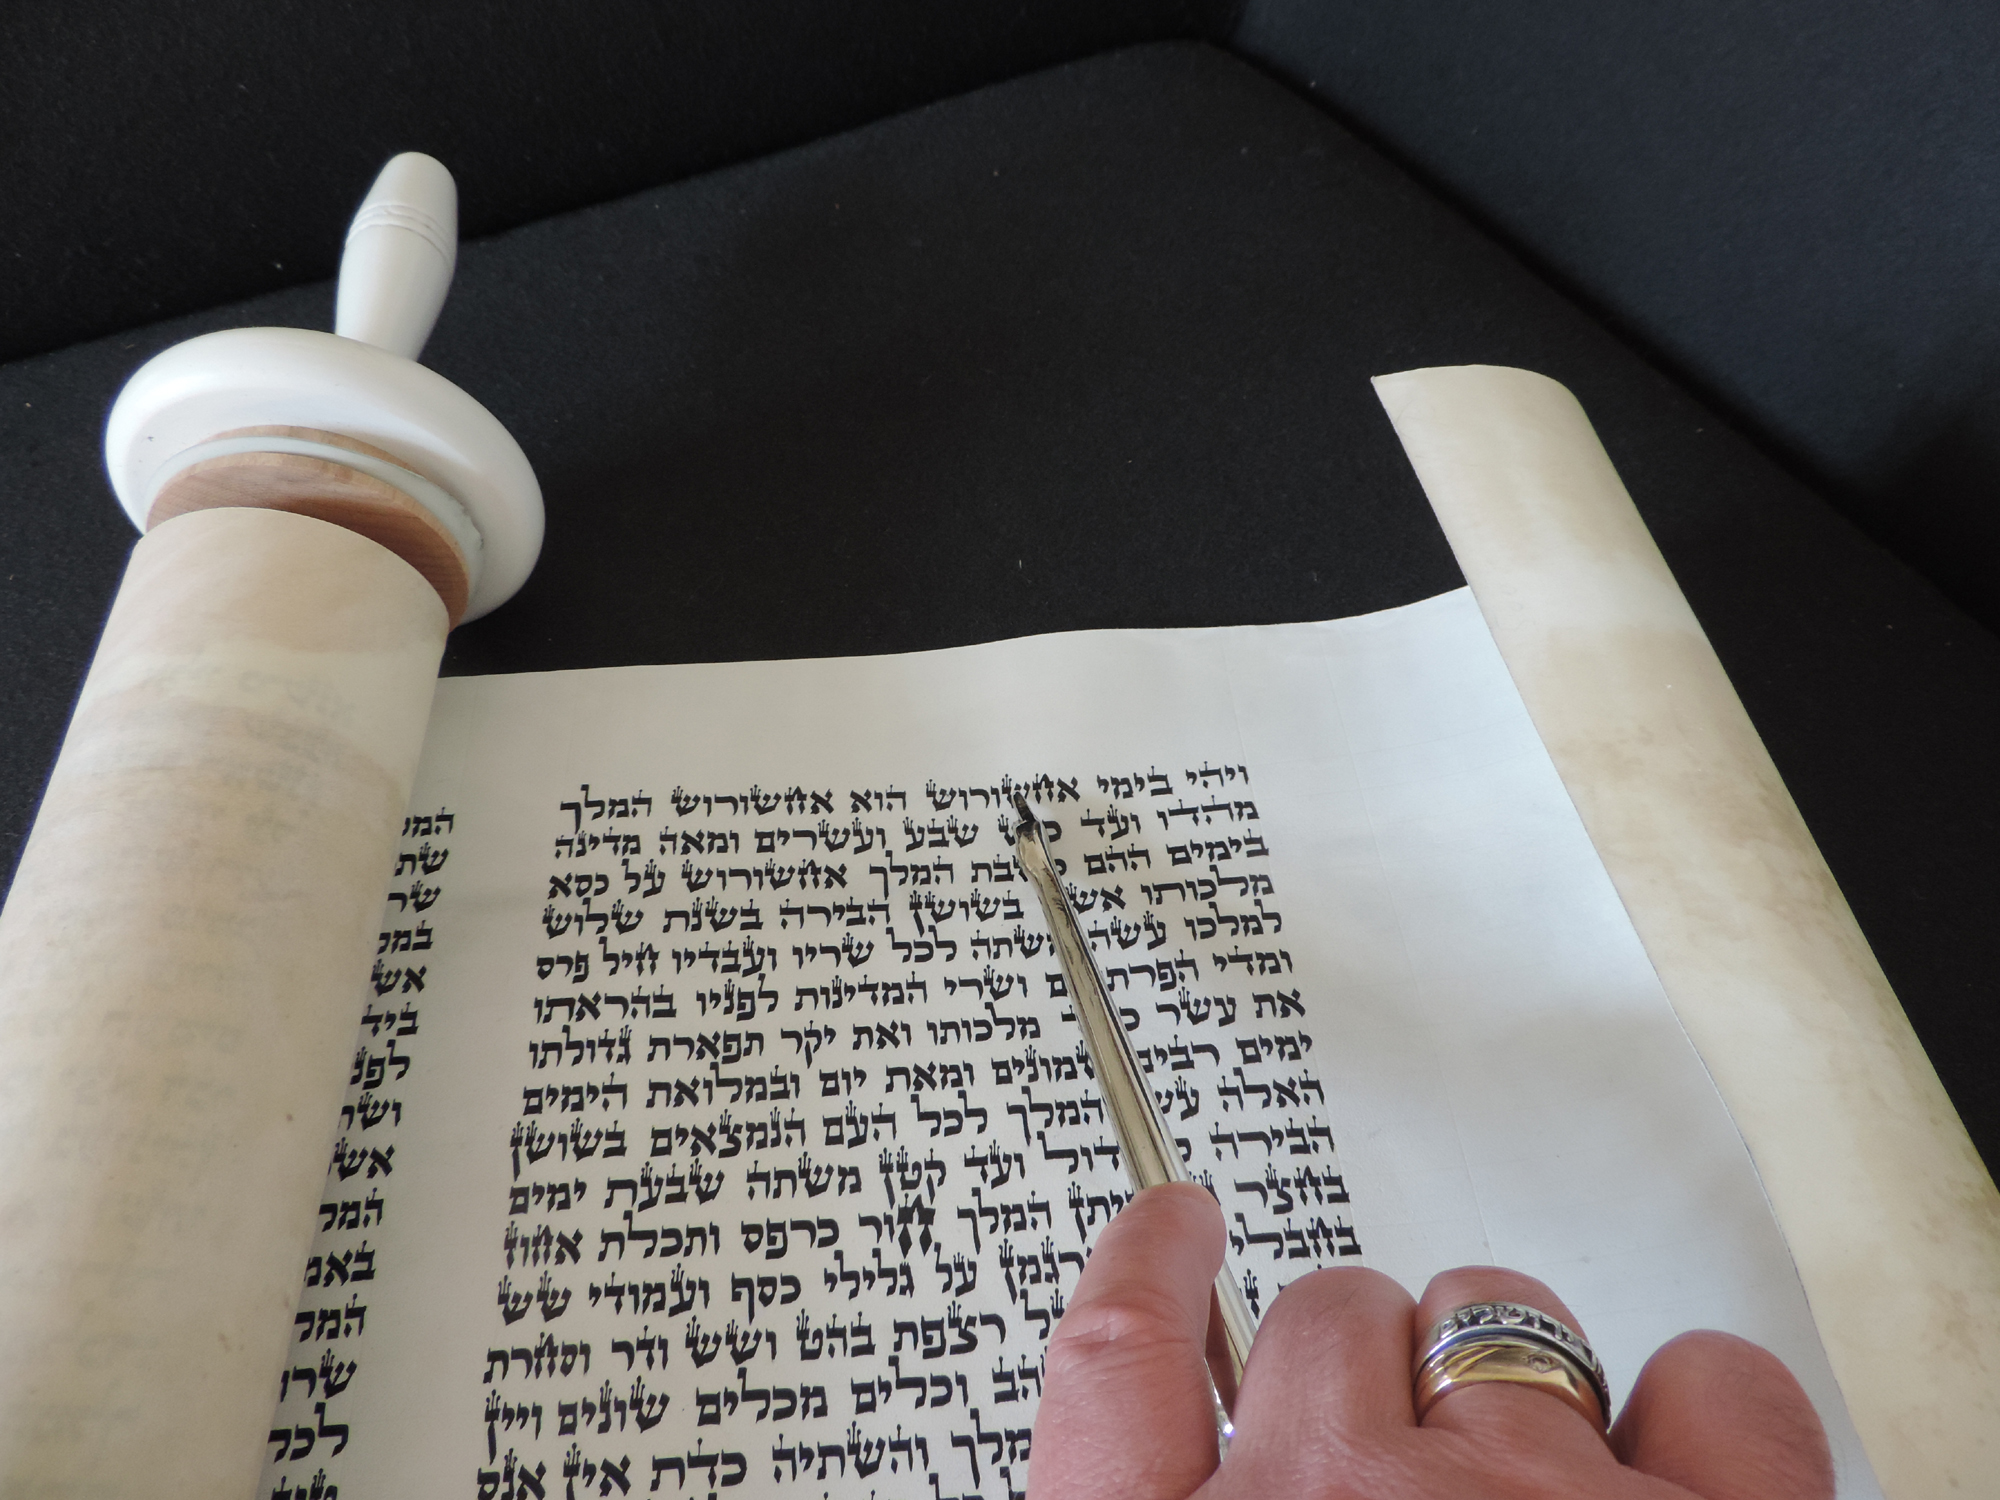 ויהי בימי אחשורוש הוא אחשורוש המלך
מהדו ועד שבע ועשרים ומאה מדינה
בימים ההם המלך אחשורוש על כסא
מלכותו בשושן הבירה בשנת שלוש
למלכו עשה לכל שריו ועבדיו חיל פרס
ומדי ושרי המדינות לפניו בהראתו
את עשר מלכותו ואת יקר תפארת גדולתו
ימים רבים שמונים ומאת יום ובמלואת הימים
האלה המלך לכל העם הנמצאים בשושן
הבירה ועד קטן משתה שבעת ימים
בחצר המלך חור כרפס ותכלת אחוז
בחבלי על גלילי כסף ועמודי שש
רצפת בהט ושש ודר וסחרת
וכלים מכלים שונים ויין
והשתיה כדת אין אנס
המ
שת
שר
במ
אש
ביד
לפנ
ושר
אש
המל
באמ
המל
שרו
לכל